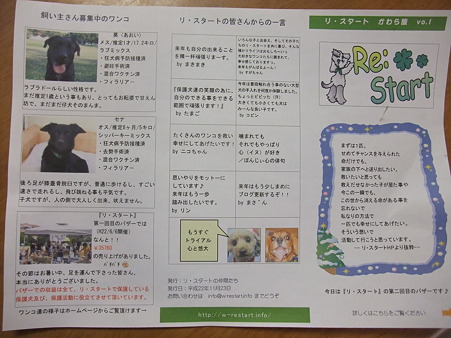 飼い主さん募集中のワンコ
葵(あおい)
メス/推定1才/17.2キロ
ラブミックス
・狂犬病予防接種
済
・避妊手術済
・混合ワクチン済
・フィラリアー
ラブラドールらしい性格です。
まだ推定1歳という事もあり、とってもお転婆で甘えん
坊で、まだまだ仔犬そのまんま。
セナ
オス/推定8ヶ月/5キロ
シッパーキーミックス
・狂犬病予防接種済
・去勢手術済
・混合ワクチン済
・フィラリアー
後ろ足が膝蓋骨脱臼ですが、普通に歩けるし、すごい
速さで走れるし、飛び跳ねる事も平気です。
子犬ですが、人の側で大人しく出来、吠えません。
【リ・スタート】
第一回目のバザーでは
(H22/6/6開催)
なんと!!
￥35760
の売り上げがありました。
その節はお暑い中、足を運んで下さった皆さん、
本当にありがとうございました。
バザーでの収益は全て、リ・スタートで保護している
保護犬及び、保護活動に役立てさせて頂いています。
ワンコ達の様子はホームページからご覧頂けます→
リ・スタートの皆さんからの一言
来年も自分の出来ること
を精一杯頑張りまーす。
by まきまき
『保護犬達の笑顔の為に、
自分のできる事をできる
範囲で頑張ります!』
by たまご
たくさんのワンコを救い
幸せにしてあげたいです!
by ニコちゃん
噛まれても
それでもやっぱり
心(イヌ)が好き
思いやりをモットーに
しています♪
来年はもう一歩
踏み出したいです。
by リン
来年はもう少しまめに
ブログ更新するぞ!!
もうすぐ
トライアル
心と悠大
発行:リ・スタートの仲間たち
発行日:平成22年11月23日
お問い合わせは info@w-restart.info までどうぞ
http://w-restart.info/
リ・スタート かわら版 vo.1
Re:
Start
まずは1匹、
せめてチャンスを与えられた
命だけでも、
家族の下へと送り出したい、
救いたいと思っても
救えだせなかった子が居た事や
今この一瞬でも、
この世から消える命がある事を
忘れないで
私なりの方法で
一匹でも幸せにしてあげたい。
そういう想いで
活動して行こうと思っています。
――リ・スタートHPより抜粋――
今日は『リ・スタート』の第二回目のバザーです♪
詳しくはこちらをご覧ください